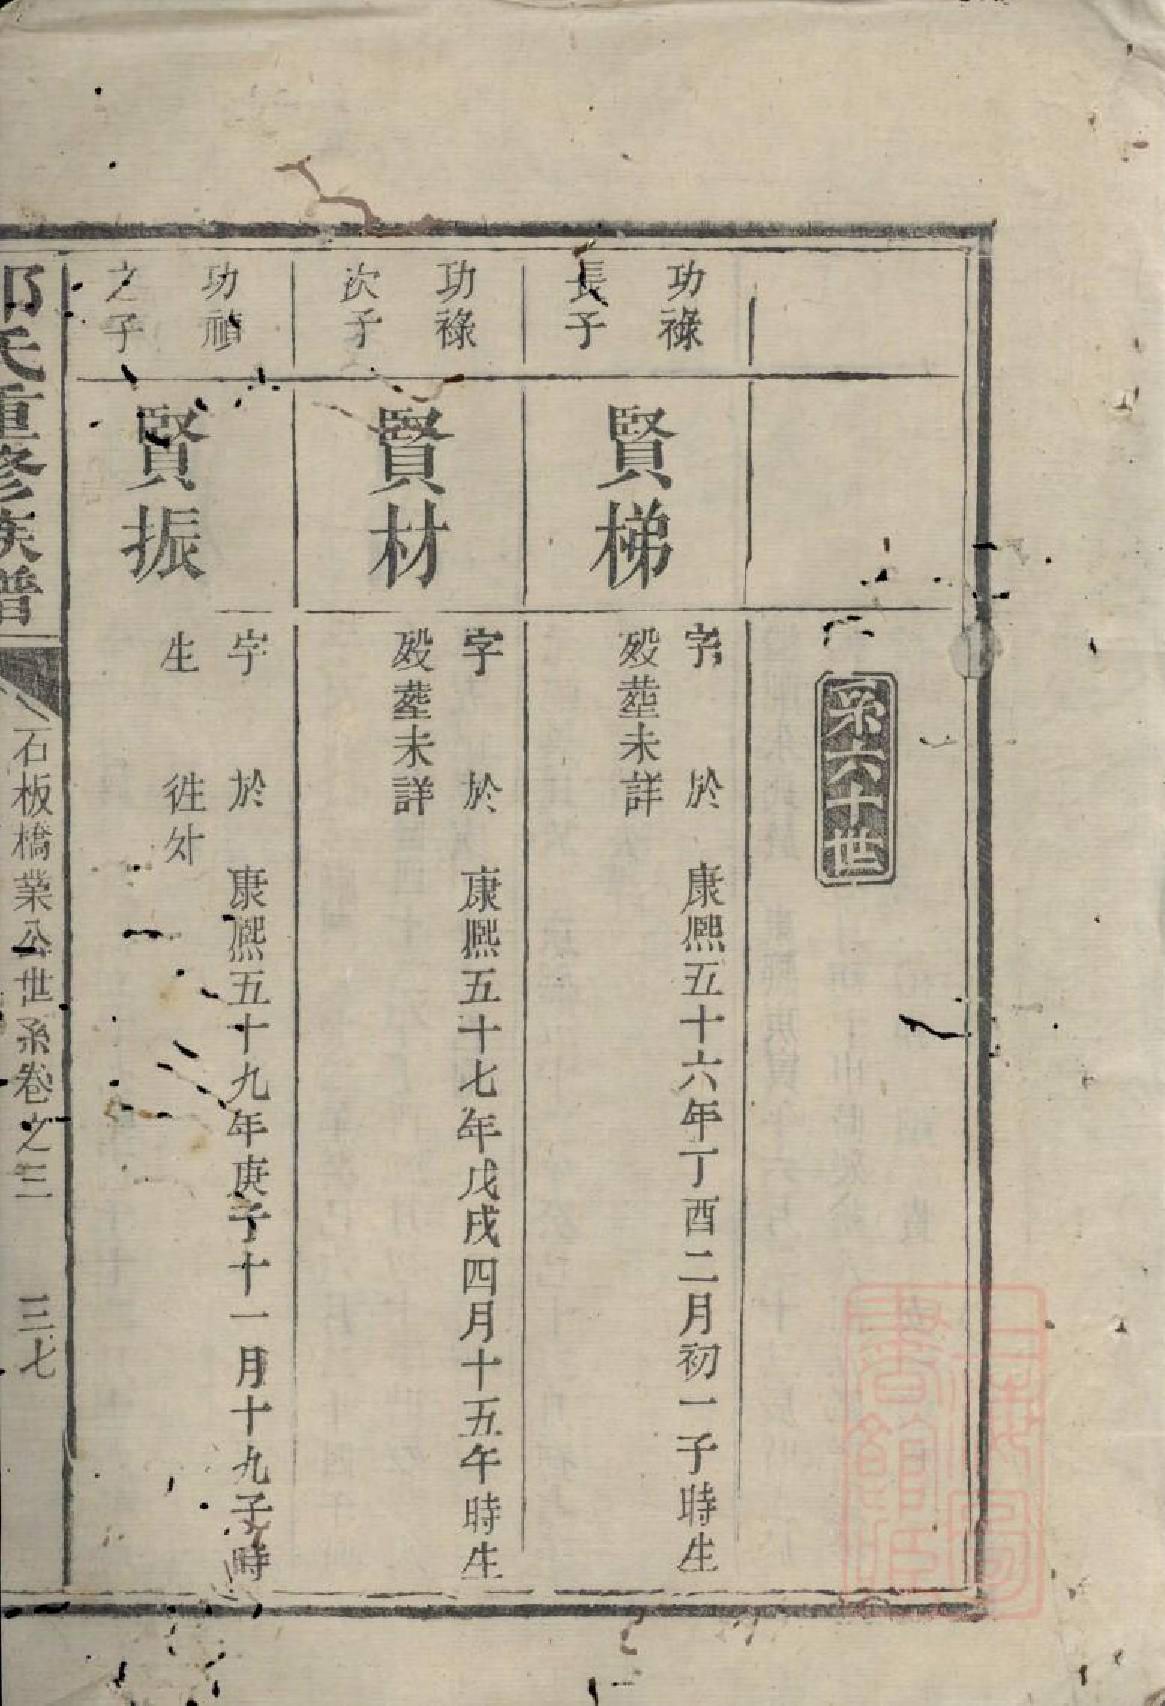 第六十世
功祿
長子
賢梯
字　於　康熙五十六年丁酉二月初一子時生
殁塟未詳
功祿
次子
賢材
字　於　康熙五十七年戊戌四月十五午時生
殁塟未詳
功禎
之子
賢振
字　於　康熙五十九年庚子十一月十九子時
生　徃外
氏重修族譜
石板橋業公世系卷之三
三七